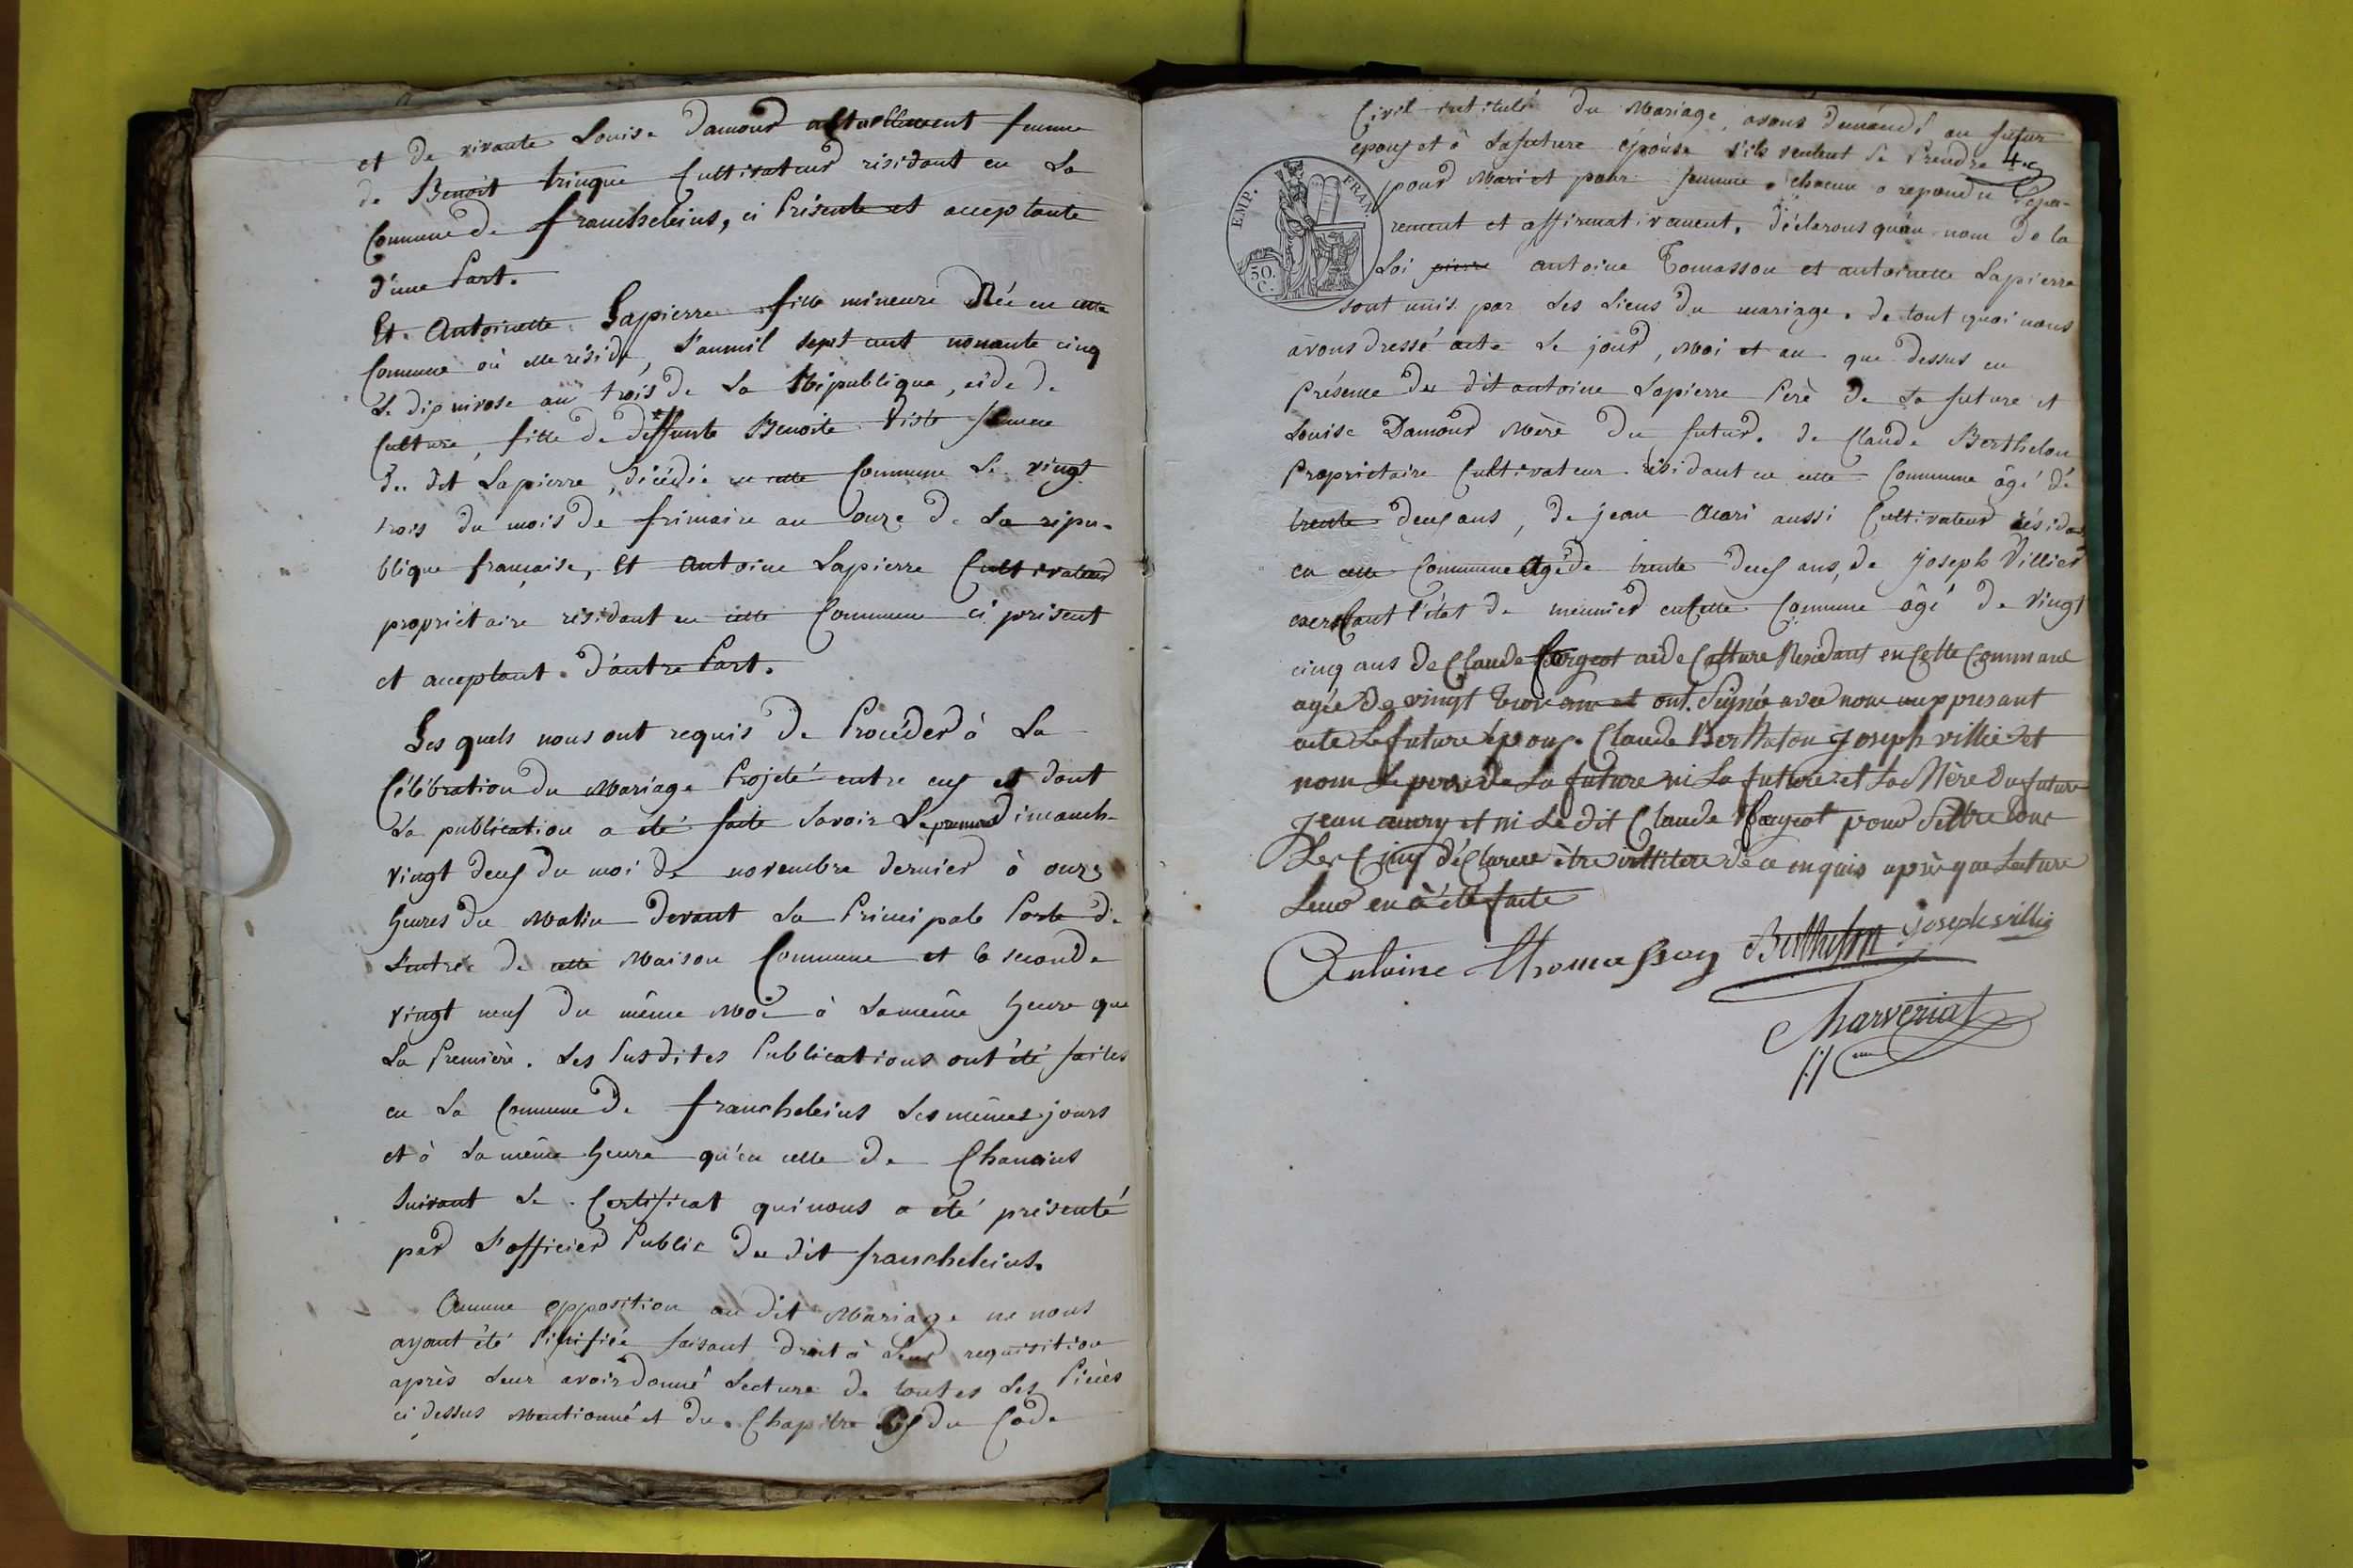 et de vivante Louise Damour actuellement femme
de Benoit trinque Cultivateur résidant en La
Commune de francheleins, ci Présente et acceptante
d'une Part.
Et Antoinette Lapierre fille mineure Née en cette
Commune où elle réside, L'an mil sept cent nonante cinq
Le dix nivose an trois de La République, aide de
Culture, fille de deffunte Benoite femme
du dit Lapierre, décédée en cette Commune Le vingt
trois du mois de frimaire an onze de La répu-
blique française, Et Antoine Lapierre Cultivateur
propriétaire résidant en cette Commune ci présent
et acceptant d'autre Part.
Les quels nous ont requis de Procéder à La
Célébration du Mariage Projeté entre eux et dont
La publication a été faite Savoir Le premier dimanch-
vingt deux du moi de novembre dernier à onze
heures du Matin devant La Principale Porte de
L'entrée de cette Maison Commune et la seconde
vingt neuf du même Moi à La même heure que
La Première. Les Susdites Publications ont été faites
en La Commune de francheleins Les mêmes jours
et à La même heure qu'en celle de Chaneins
Suivant Le Certificat qui nous a été présenté
par L'officier Public du dit francheleins.
Aucune opposition au dit Mariage ne nous
ayant été Signifiée faisant droit à Leur requisition
après Leur avoir donné Lecture de toutes Les Pièces
ci dessus Mentionné et du Chapitre du Code
Civil intitulé du Mariage, avons demandé au futur
époux et à La future épouse s'ils veulent Se Prendre 4.
pour Mari et pour femme, chacun a repondu Sépa-
EMP. FRAN.
50. C.
rement et affirmativement, déclarons qu'au nom de la
Loi pierre antoine Tomasson et antoinette Lapierre
sont unis par Les Liens du mariage. de tout quoi nous
avons dressé acte Le jour, Moi et an que dessus en
Présence du dit antoine Lapierre Père de La future et
Louise Damour Mère du futur. de Claude Berthelon
Propriétaire Cultivateur résidant en cette Commune âgé de
trente deux ans, de jean Auari aussi Cultivateur résidan
en cette Commune agé de trente deux ans, de Joseph Villier
exersant l'état de meunier en Cette Commune âgé de vingt
cinq ans de Claude aide Culture Residant en Cette Commune
agée de vingt trois ans et ont Signée avec nous aux presant
acte Le future Epoux. Claude Berthelon Joseph villie et
nom Le pere de La future ni La future et La Mère du future
jean et ni Le dit Claude pour
Les Cinq déClaree être de ce enquis après que Lecture
Leur en à été faite
Antoine thomasson Berthelon Joseph villie
Charveriat